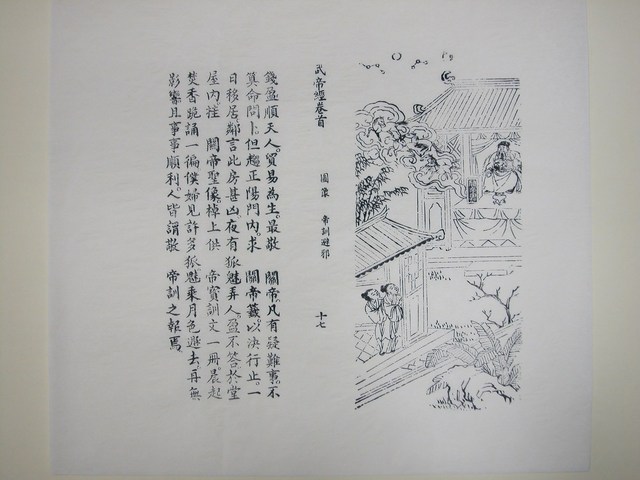 武帝經卷首 圖像 帝訓避邪 十七
錢盈順天人。貿易為生。最敬 關帝。凡有疑難事。不
算命問卜。但趨正陽門內。求 關帝籤。以決行止。一
日移居。鄰言此房甚凶。夜有狐魅弄人。盈不答。於堂
屋內。挂 關帝聖像。棹上供 帝寶訓文一冊。晨起
焚香跪誦一徧。僕婦見許多狐魅。乘月色逃去。再無
影響。且事事順利。人皆謂敬 帝訓之報焉。